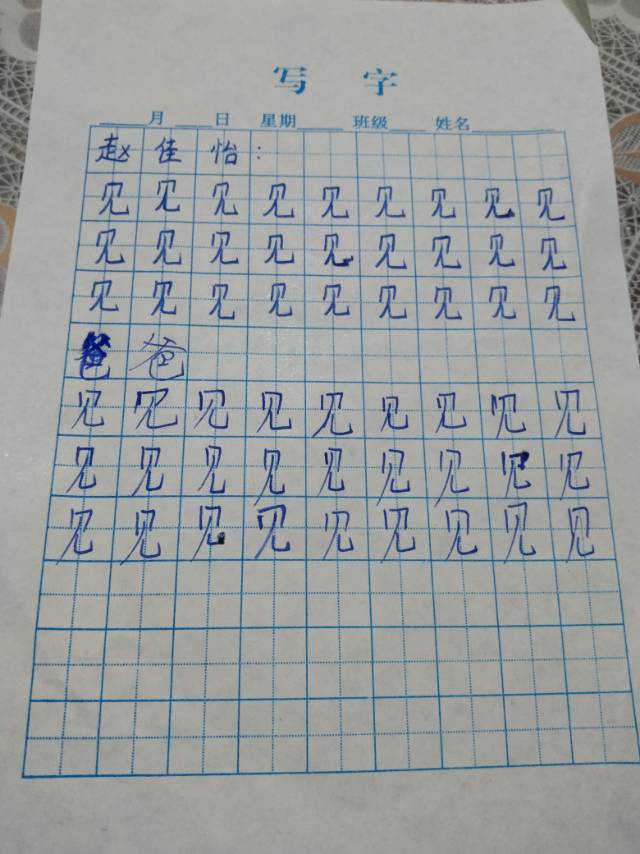 写 字
月 日 星期 班级 姓名
赵佳怡：
见见见见见见见见见
见见见见见见见见见
见见见见见见见见见
爸爸
见见见见见见见见见
见见见见见见见见见
见见见见见见见见见